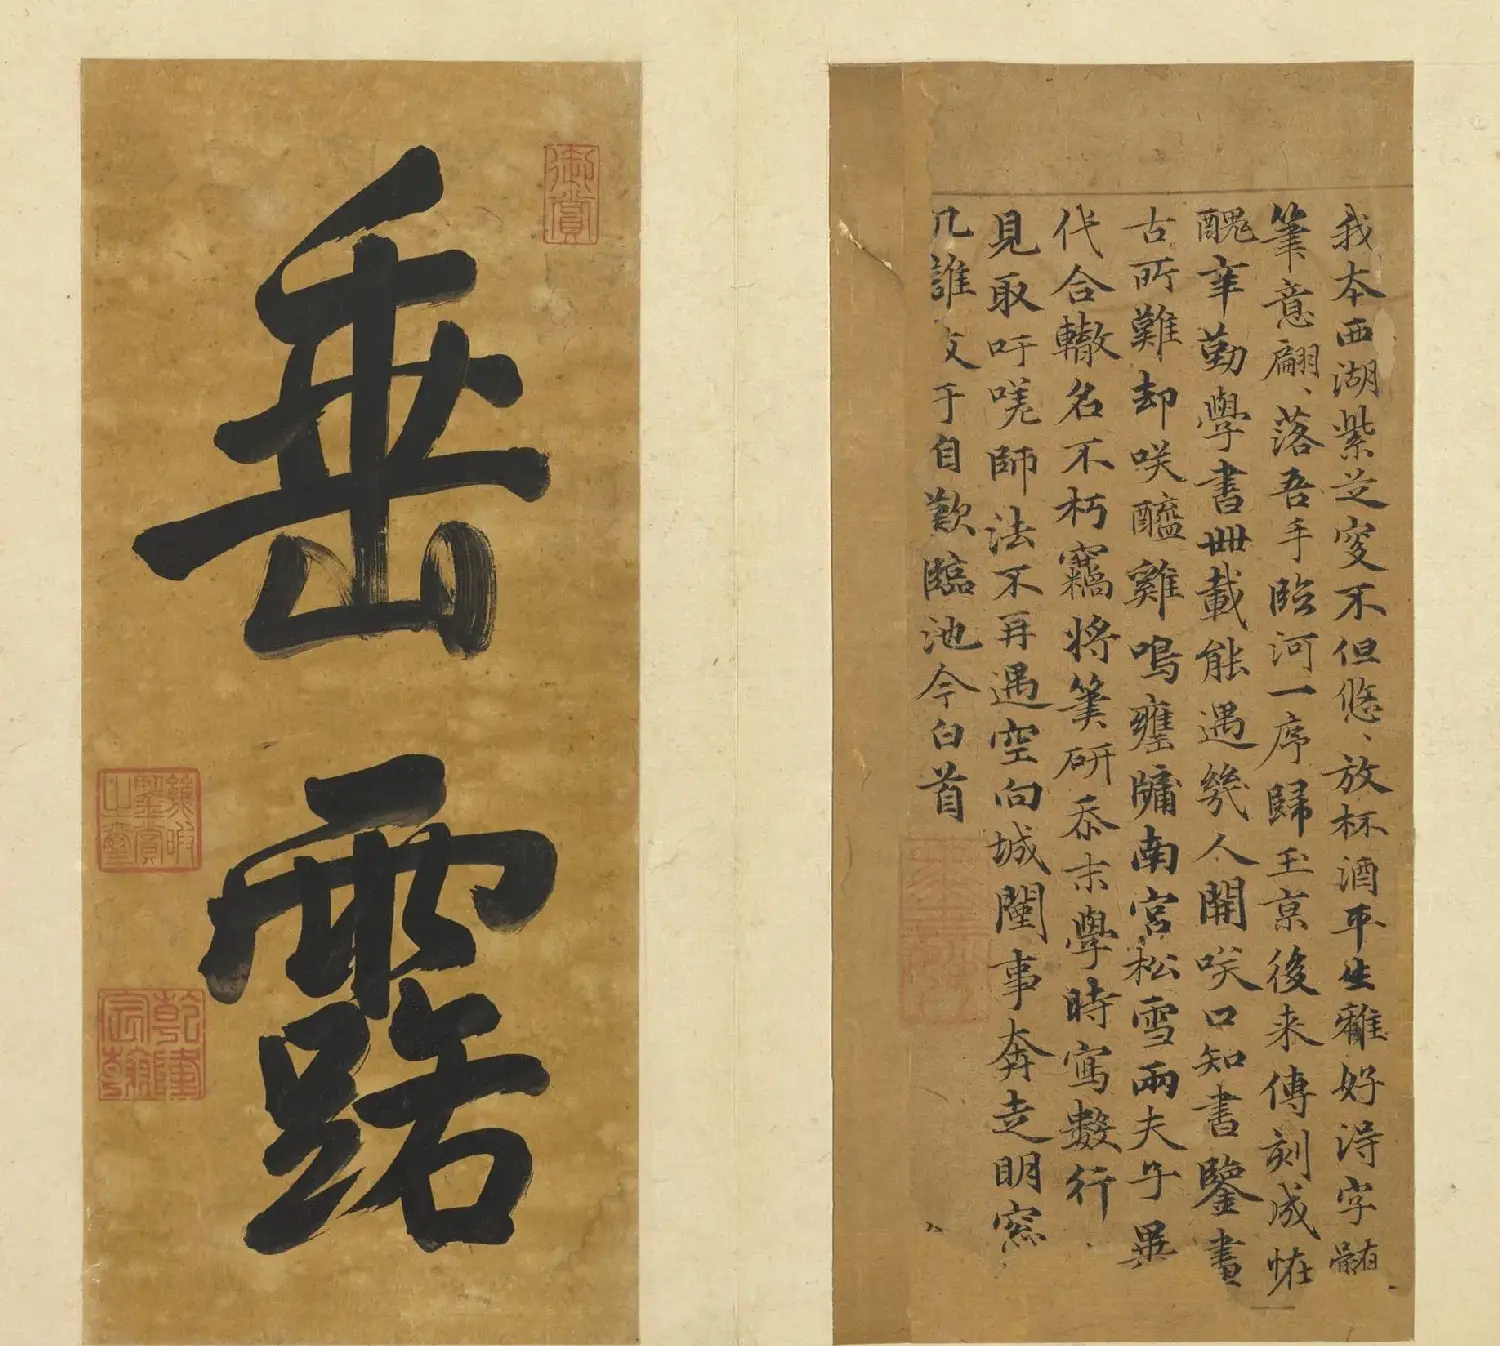 我本西湖紫芝叟不但悠、放杯酒平生雅好淂字髓
筆意翩、落吾手臨河一序歸玉京後来傳刻成恠
醜辛勤學書丗載能遇幾人開咲口知書鑒畫
古所難却咲醯雞鳴甕牖南宮松雪兩夫子異
代合轍名不朽竊將筆研忝末學時寫數行
見取吁嗟師法不再遇空向城闉事奔走明窓
几誰自歎臨池今白首
御賞
垂露
幾暇鑒賞之璽
乾隆宸翰